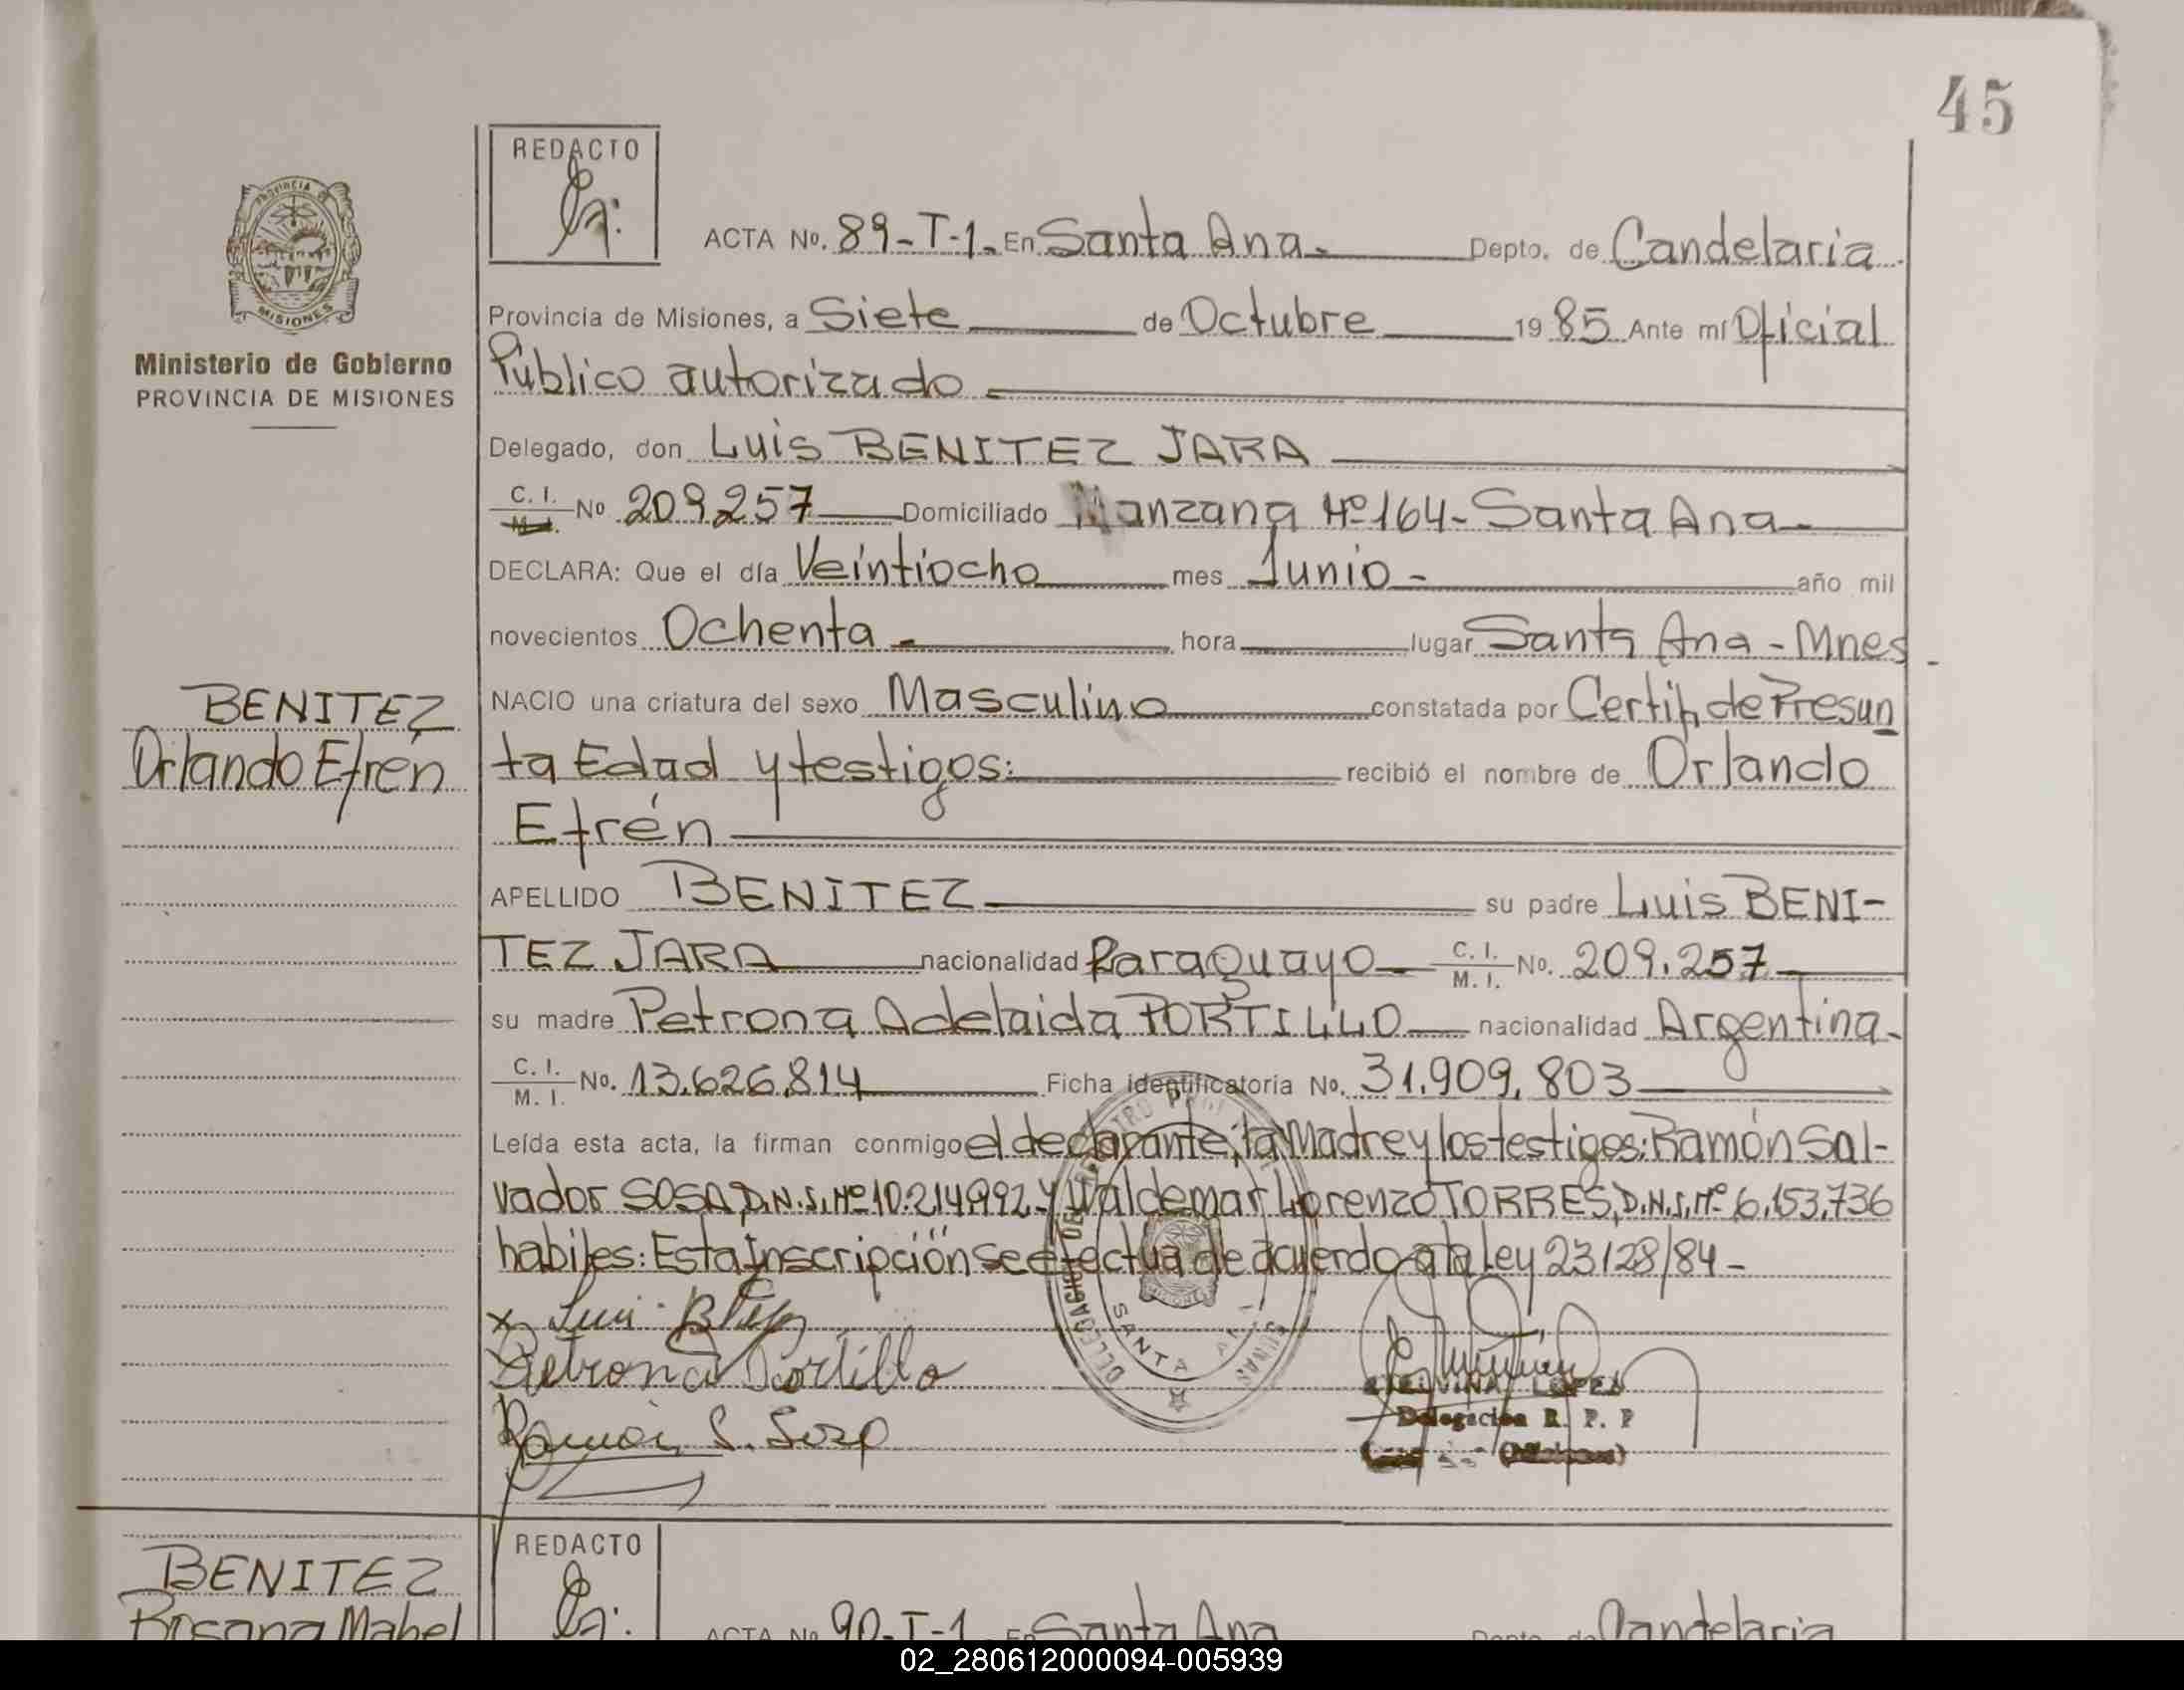 45
REDACTO
PROVINCIA DE
MISIONES
Ministerio de Gobierno
PROVINCIA DE MISIONES
ACTA No. 89-T-1- En Santa Ana- Depto. de Candelaria
Provincia de Misiones, a Siete de Octubre 1985 Ante mí Oficial
Público autorizado
Delegado, don Luis BENITEZ JARA
C. I. M. I. No 209.257 Domiciliado Manzana Nº 164- Santa Ana-
DECLARA: Que el día Veintiocho mes Junio - año mil
novecientos Ochenta - hora lugar Santa Ana - Mnes -
BENITEZ
Orlando Efrén
NACIO una criatura del sexo Masculino constatada por Certif, de Presun
ta Edad y testigos: recibió el nombre de Orlando
Efrén
APELLIDO BENITEZ su padre Luis BENI-
TEZ JARA nacionalidad Paraguayo C. I. M. I. No. 209.257
su madre Petrona Adelaida PORTILLO nacionalidad Argentina-
C. I. M. I. No. 13.626.814 Ficha identificatoria No. 31.909.803
Leída esta acta, la firman conmigo el declarante, la Madre y los testigos: Ramón Sal-
vador SOSA, D.N.I. Nº 10.214.992 y Waldemar Lorenzo TORRES, D.N.I. Nº 6.153.736
habiles: Esta Inscripción se efectua de acuerdo a la Ley 23128/84 -
SANTA ANA
x Luis
Petrona Portillo
Ramón S. Sosa
LOPEZ
Delegación R. P. P
BENITEZ
Rosana Mabel
REDACTO
ACTA No 90-T-1 En Santa Ana Depto. de Candelaria
02_280612000094-005939